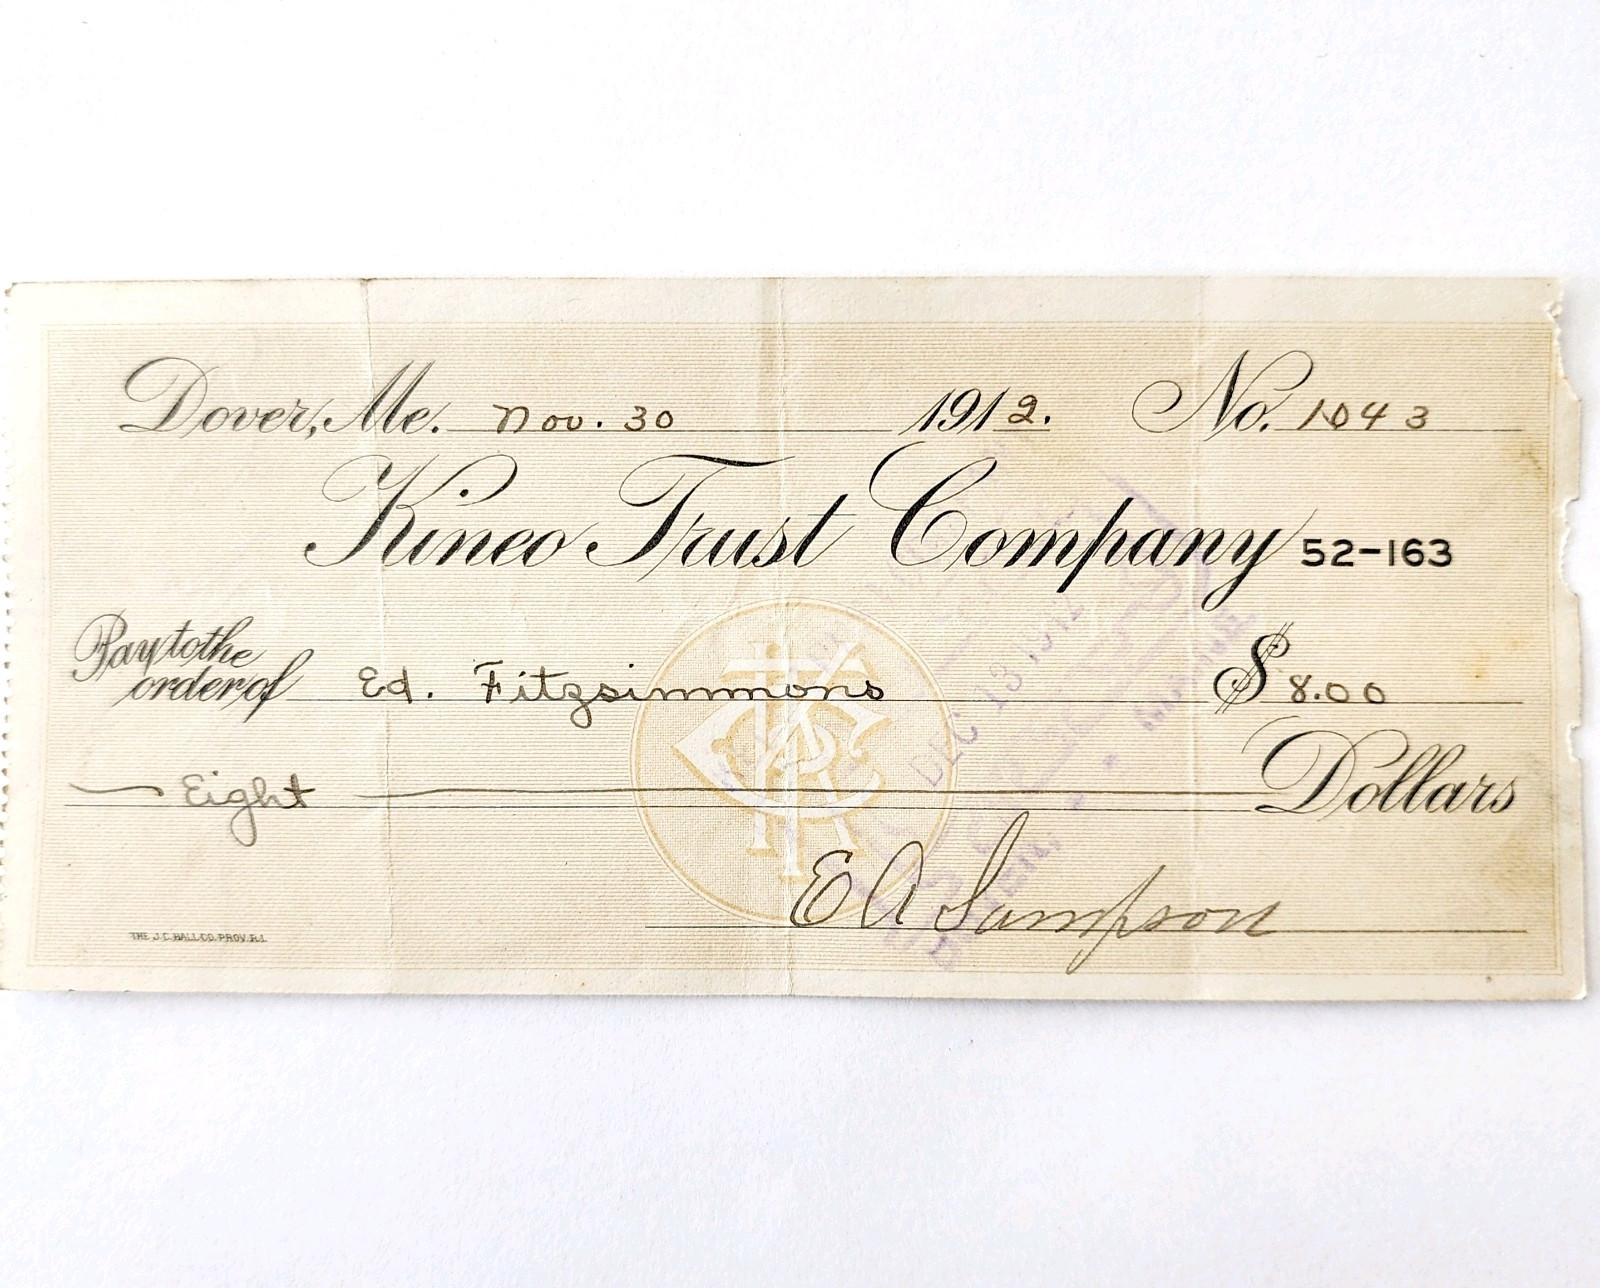 Dover, Me. Nov. 30 1912. No. 1043
Kineo Trust Company 52-163
Pay to the
order of Ed. Fitzsimmons $8.00
Eight Dollars
E A Sampson
THE J.C. HALL CO. PROV. R.I.
DEC 13 1912